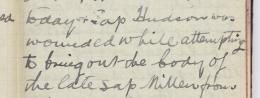 ed today & Sap Hudson was
wounded while attempting
to bring out the body of
the late Sap Millen from